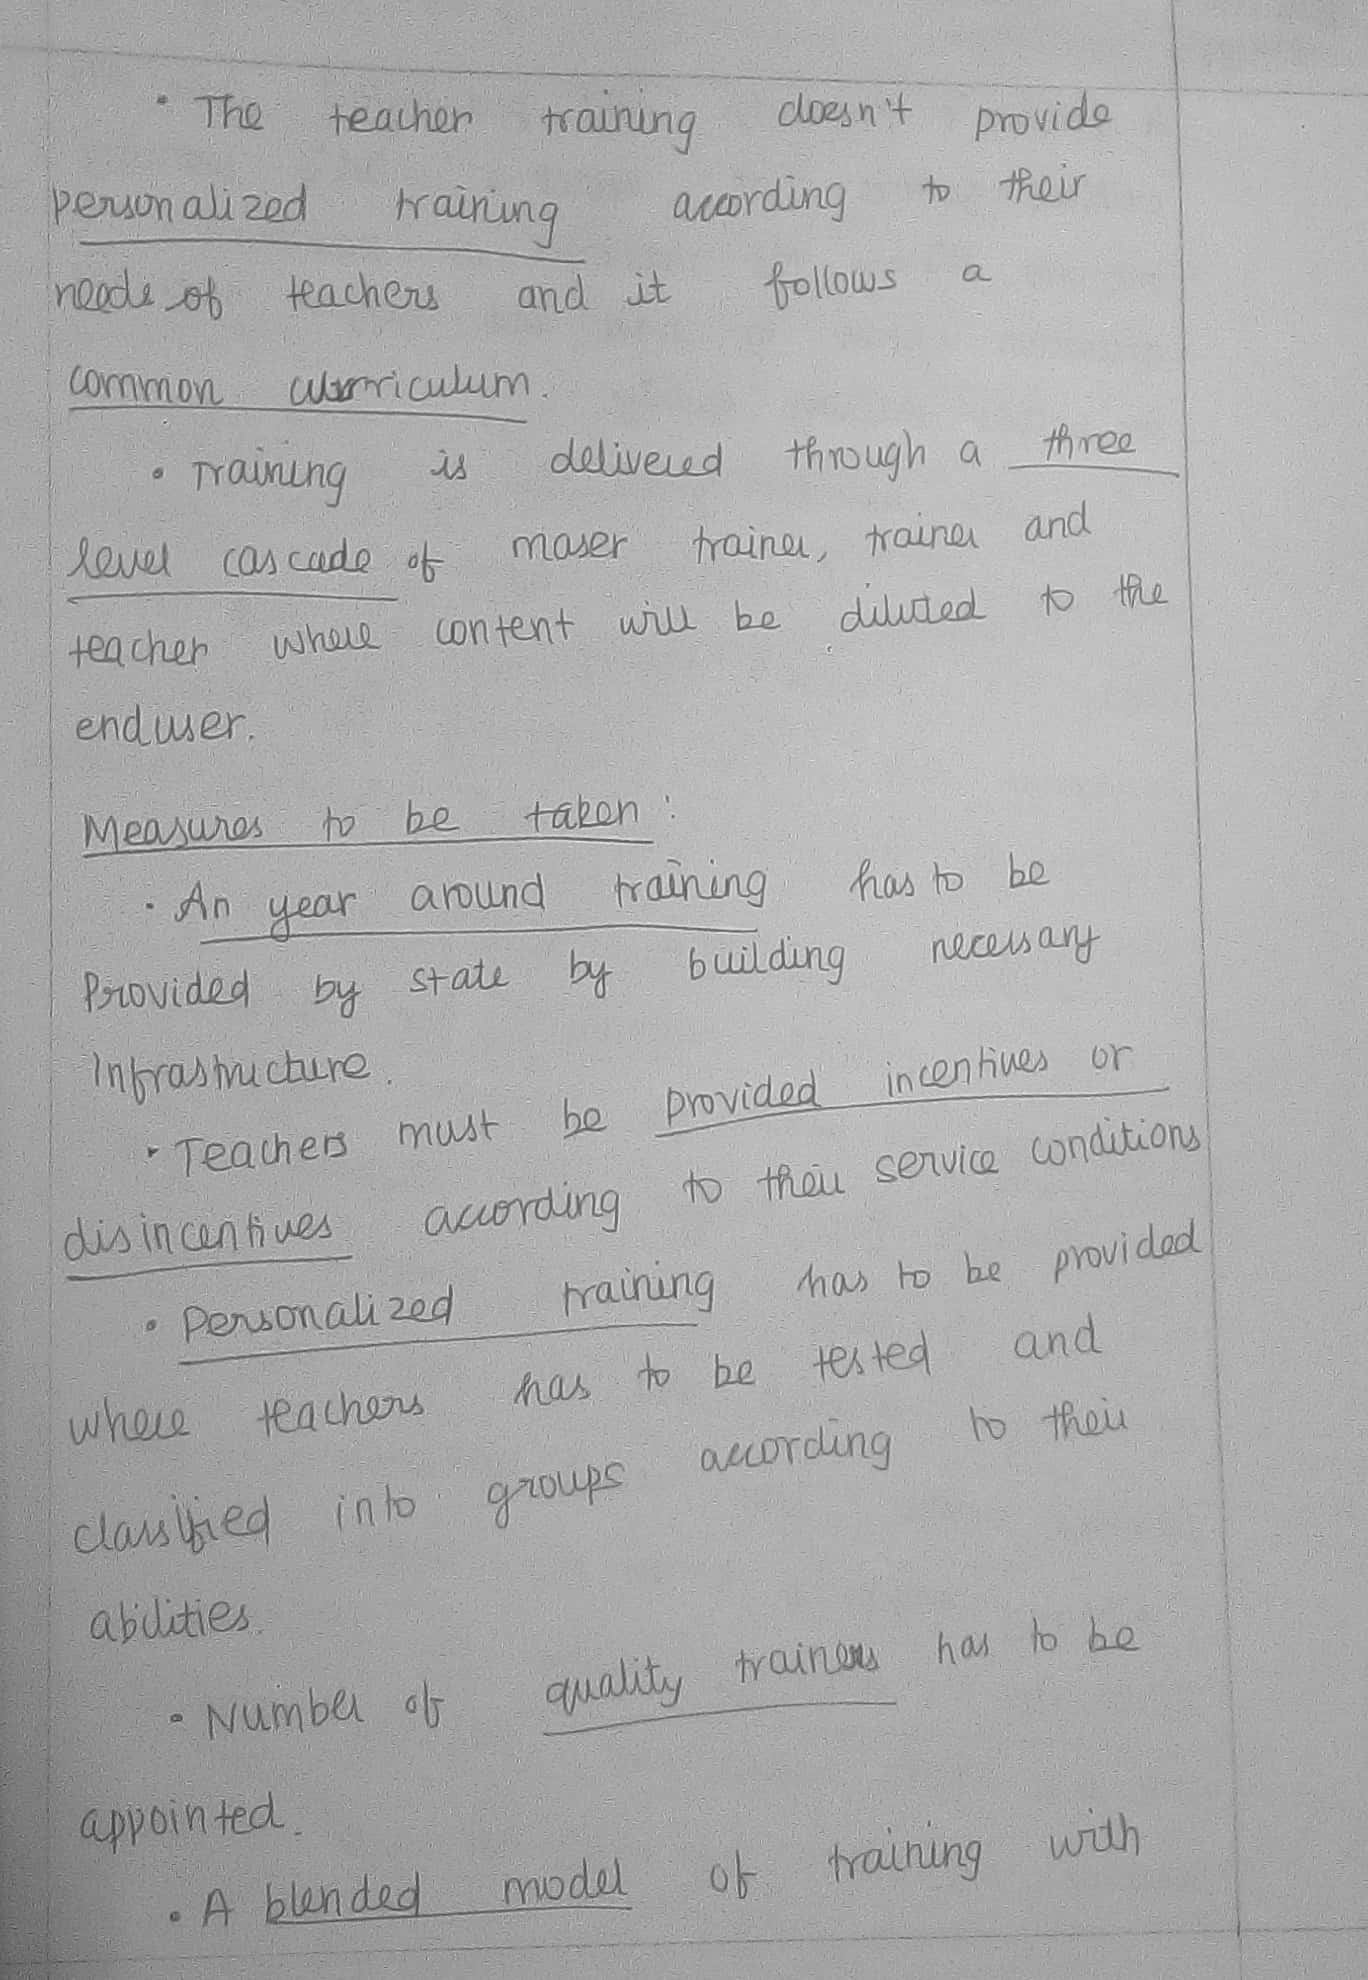 • The teacher training doesn't provide
personalized training according to their
needs of teachers and it follows a
common curriculum.
• Training is delivered through a three
level cascade of maser trainer, trainer and
teacher where content will be diluted to the
enduser.
Measures to be taken :
• An year around training has to be
Provided by state by building necessary
Infrastructure.
• Teachers must be provided incentives or
disincentives according to their service conditions
• Personalized training has to be provided
where teachers has to be tested and
classified into groups according to their
abilities.
• Number of quality trainers has to be
appointed.
• A blended model of training with